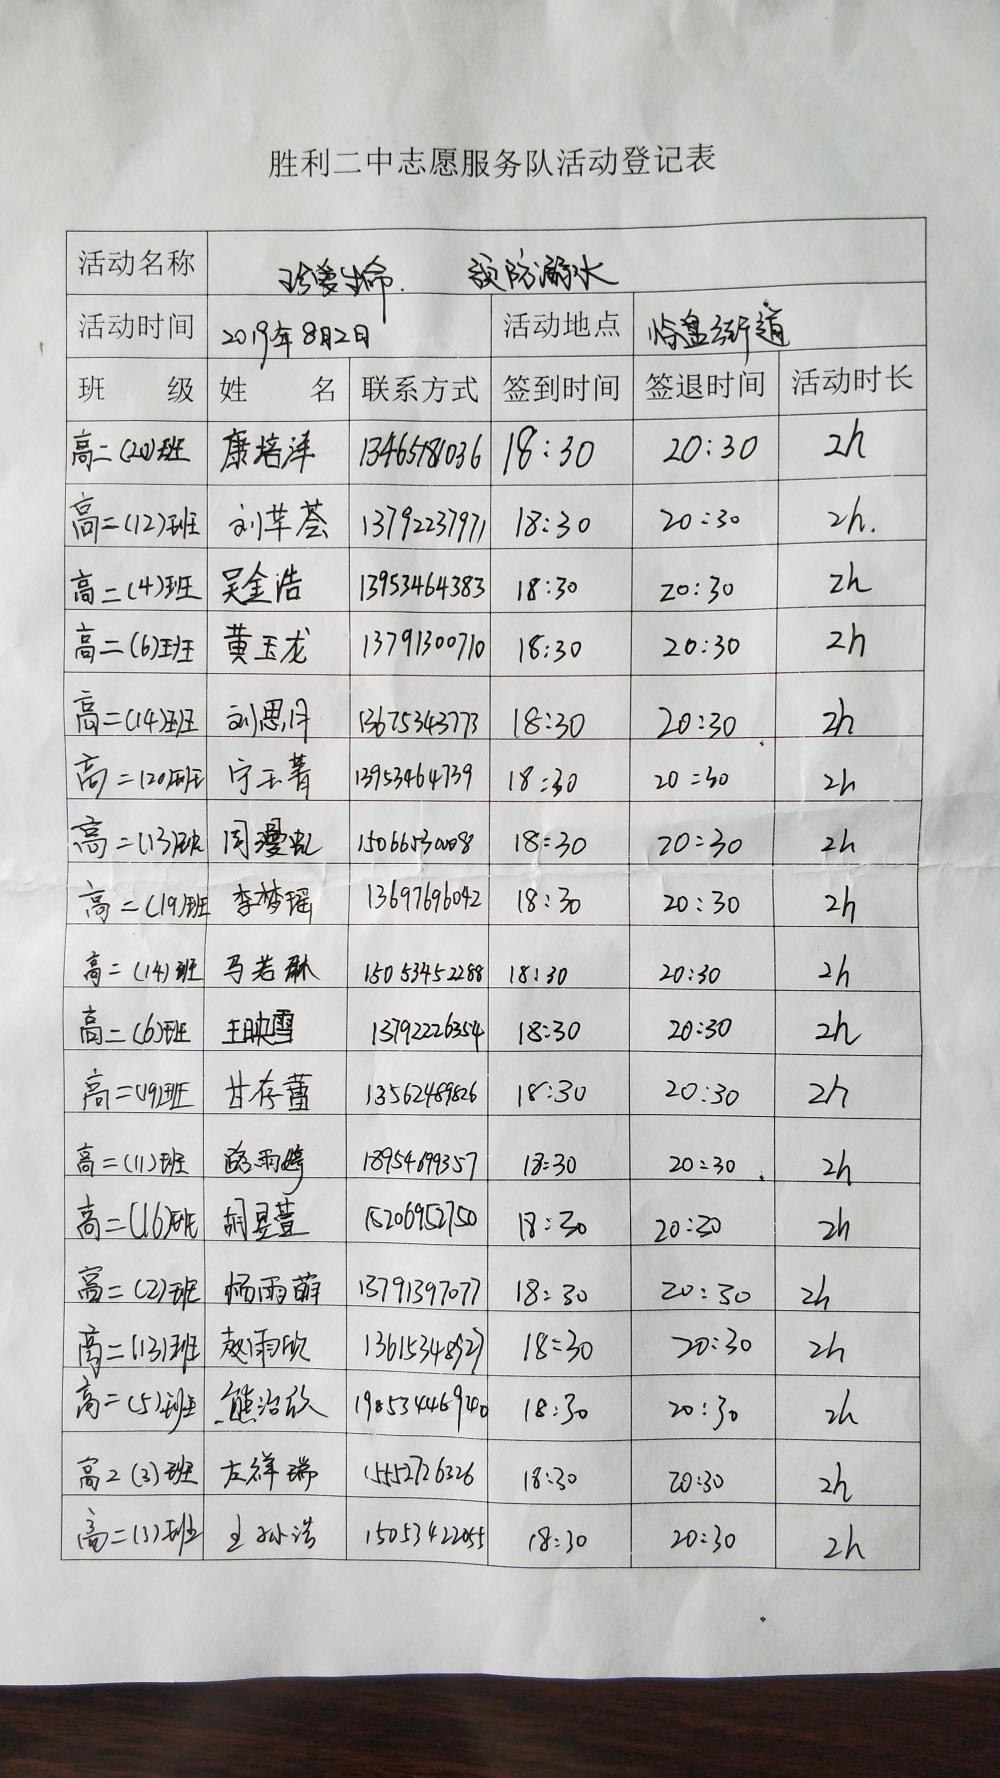 胜利二中志愿服务队活动登记表
活动名称 珍爱生命. 预防溺水
活动时间 2019年8月2日 活动地点 街道
班 级 姓 名 联系方式 签到时间 签退时间 活动时长
高二(20)班 康培泽 13465781036 18:30 20:30 2h
高二(12)班 刘苹荟 13792237971 18:30 20:30 2h.
高二(4)班 吴金浩 13953464383 18:30 20:30 2h
高二(6)班 黄玉龙 13791300710 18:30 20:30 2h
高二(14)班 刘思月 13675343773 18:30 20:30 2h
高二(20)班 宁玉菁 13953464739 18:30 20:30 2h
高二(13)班 周 15066530008 18:30 20:30 2h
高二(19)班 李梦瑶 13697696042 18:30 20:30 2h
高二(14)班 马若琳 15053452288 18:30 20:30 2h
高二(6)班 王映雪 13792226354 18:30 20:30 2h
高二(19)班 甘存蕾 13562489826 18:30 20:30 2h
高二(11)班 路雨婷 18954899357 18:30 20:30 2h
高二(16)班 胡昱萱 15206952750 18:30 20:30 2h
高二(2)班 杨雨萌 13791397077 18:30 20:30 2h
高二(13)班 赵雨欣 13615348927 18:30 20:30 2h
高二(5)班 熊治欣 19853446940 18:30 20:30 2h
高2(3)班 左祥瑞 15552726326 18:30 20:30 2h
高二(3)班 王孙浩 15053422055 18:30 20:30 2h